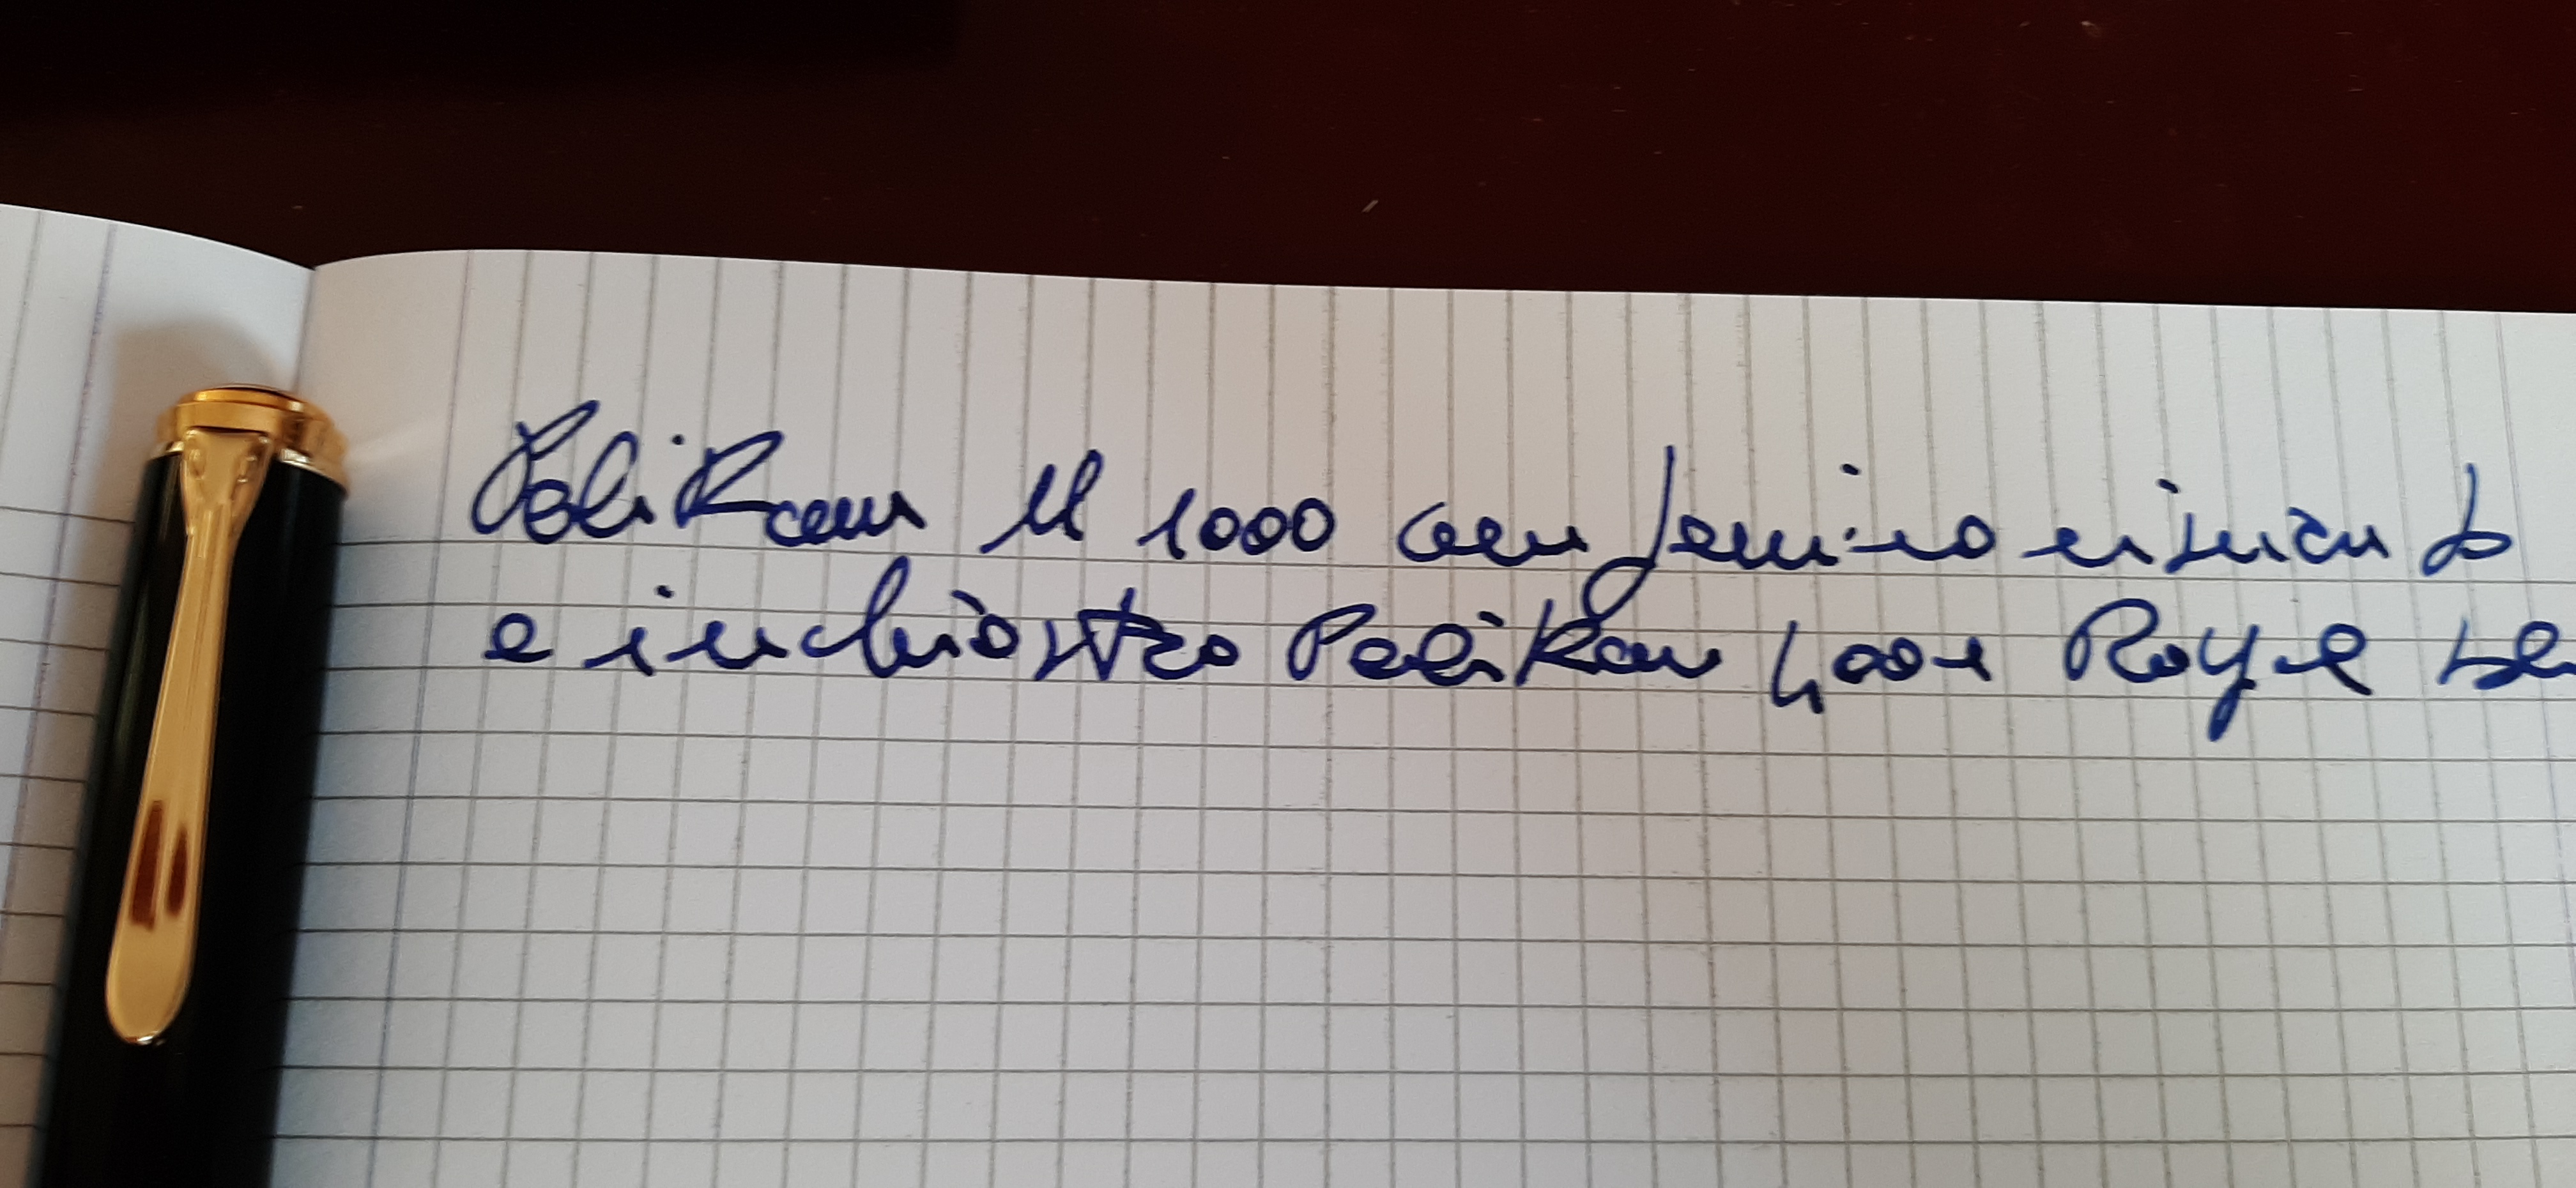 Pelikan M 1000 con pennino rismato
e inchiostro Pelikan 4001 Royal